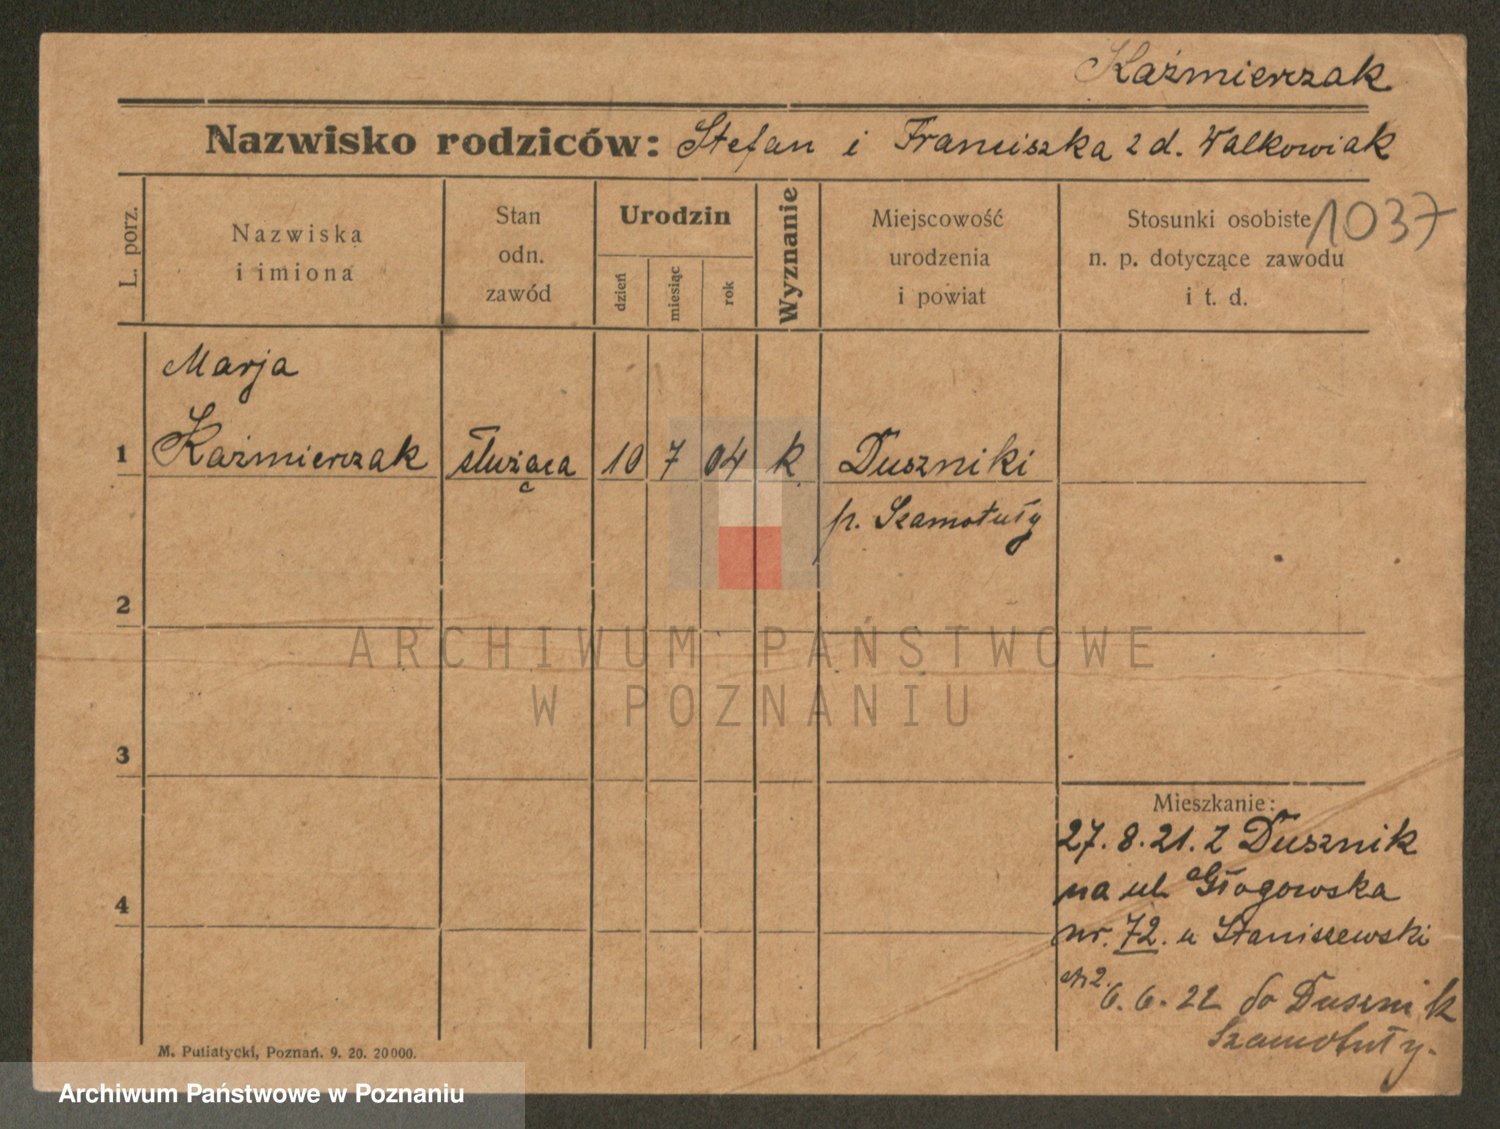 Kaźmierczak
Nazwisko rodziców: Stefan i Franciszka z d. Walkowiak
L. porz.
Nazwiska
i imiona
Stan
odn.
zawód
Urodzin
dzień
miesiąc
rok
Wyznanie
Miejscowość
urodzenia
i powiat
Stosunki osobiste
n. p. dotyczące zawodu
i t. d.
1037
Marja
1 Kaźmierczak służąca 10 7 04 k Duszniki
p. Szamotuły
2
ARCHIWUM PAŃSTWOWE
W POZNANIU
3
Mieszkanie:
27. 8. 21. z Dusznik
na ul Głogowska
4
nr. 72. u Staniszewski
6. 6. 22 do Dusznik
Szamotuły.
M. Putiatycki, Poznań. 9. 20. 20000.
Archiwum Państwowe w Poznaniu